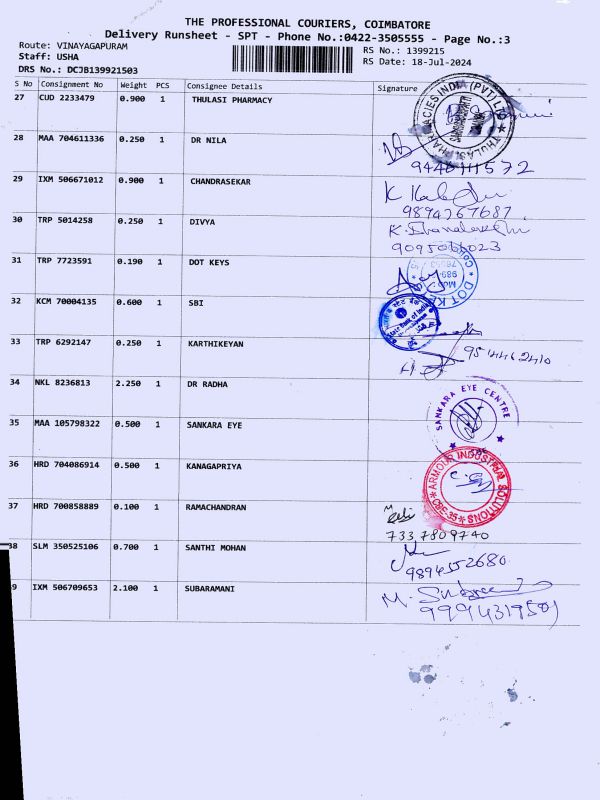 THE PROFESSIONAL COURIERS, COIMBATORE
Delivery Runsheet - SPT - Phone No.:0422-3505555 - Page No.:3
Route: VINAYAGAPURAM
Staff: USHA
DRS No.: DCJB139921503
RS No.: 1399215
RS Date: 18-Jul-2024
S No Consignment No Weight PCS Consignee Details Signature
27 CUD 2233479 0.900 1 THULASI PHARMACY
THULASI PHARMACIES INDIA (PVT) LTD
28 MAA 704611336 0.250 1 DR NILA
29 IXM 506671012 0.900 1 CHANDRASEKAR
9894267687
30 TRP 5014258 0.250 1 DIVYA
31 TRP 7723591 0.190 1 DOT KEYS
32 KCM 70004135 0.600 1 SBI
State Bank of India
33 TRP 6292147 0.250 1 KARTHIKEYAN
9514462410
34 NKL 8236813 2.250 1 DR RADHA
35 MAA 105798322 0.500 1 SANKARA EYE
SANKARA EYE CENTRE
36 HRD 704086914 0.500 1 KANAGAPRIYA
ARMOUR INDUSTRIAL SOLUTIONS
CBE-35
37 HRD 700858889 0.100 1 RAMACHANDRAN
7337809740
38 SLM 350525106 0.700 1 SANTHI MOHAN
9894552680
9 IXM 506709653 2.100 1 SUBARAMANI